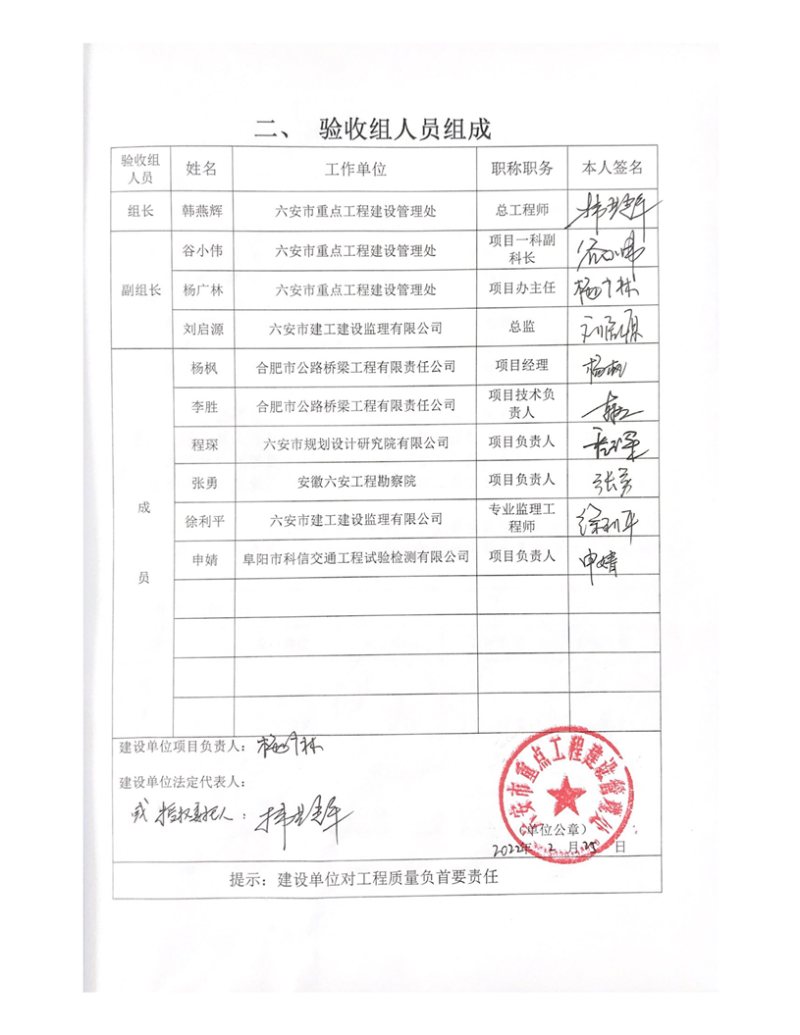 二、 验收组人员组成
验收组人员 姓名 工作单位 职称职务 本人签名
组长 韩燕辉 六安市重点工程建设管理处 总工程师
副组长 谷小伟 六安市重点工程建设管理处 项目一科副科长 谷小伟
杨广林 六安市重点工程建设管理处 项目办主任 杨广林
刘启源 六安市建工建设监理有限公司 总监 刘启源
成员 杨枫 合肥市公路桥梁工程有限责任公司 项目经理 杨枫
李胜 合肥市公路桥梁工程有限责任公司 项目技术负责人
程琛 六安市规划设计研究院有限公司 项目负责人 程琛
张勇 安徽六安工程勘察院 项目负责人 张勇
徐利平 六安市建工建设监理有限公司 专业监理工程师 徐利平
申婧 阜阳市科信交通工程试验检测有限公司 项目负责人 申婧
建设单位项目负责人: 杨广林
建设单位法定代表人:
或授权委托人:
六安市重点工程建设管理处
(单位公章)
2022年 2 月 25 日
提示: 建设单位对工程质量负首要责任